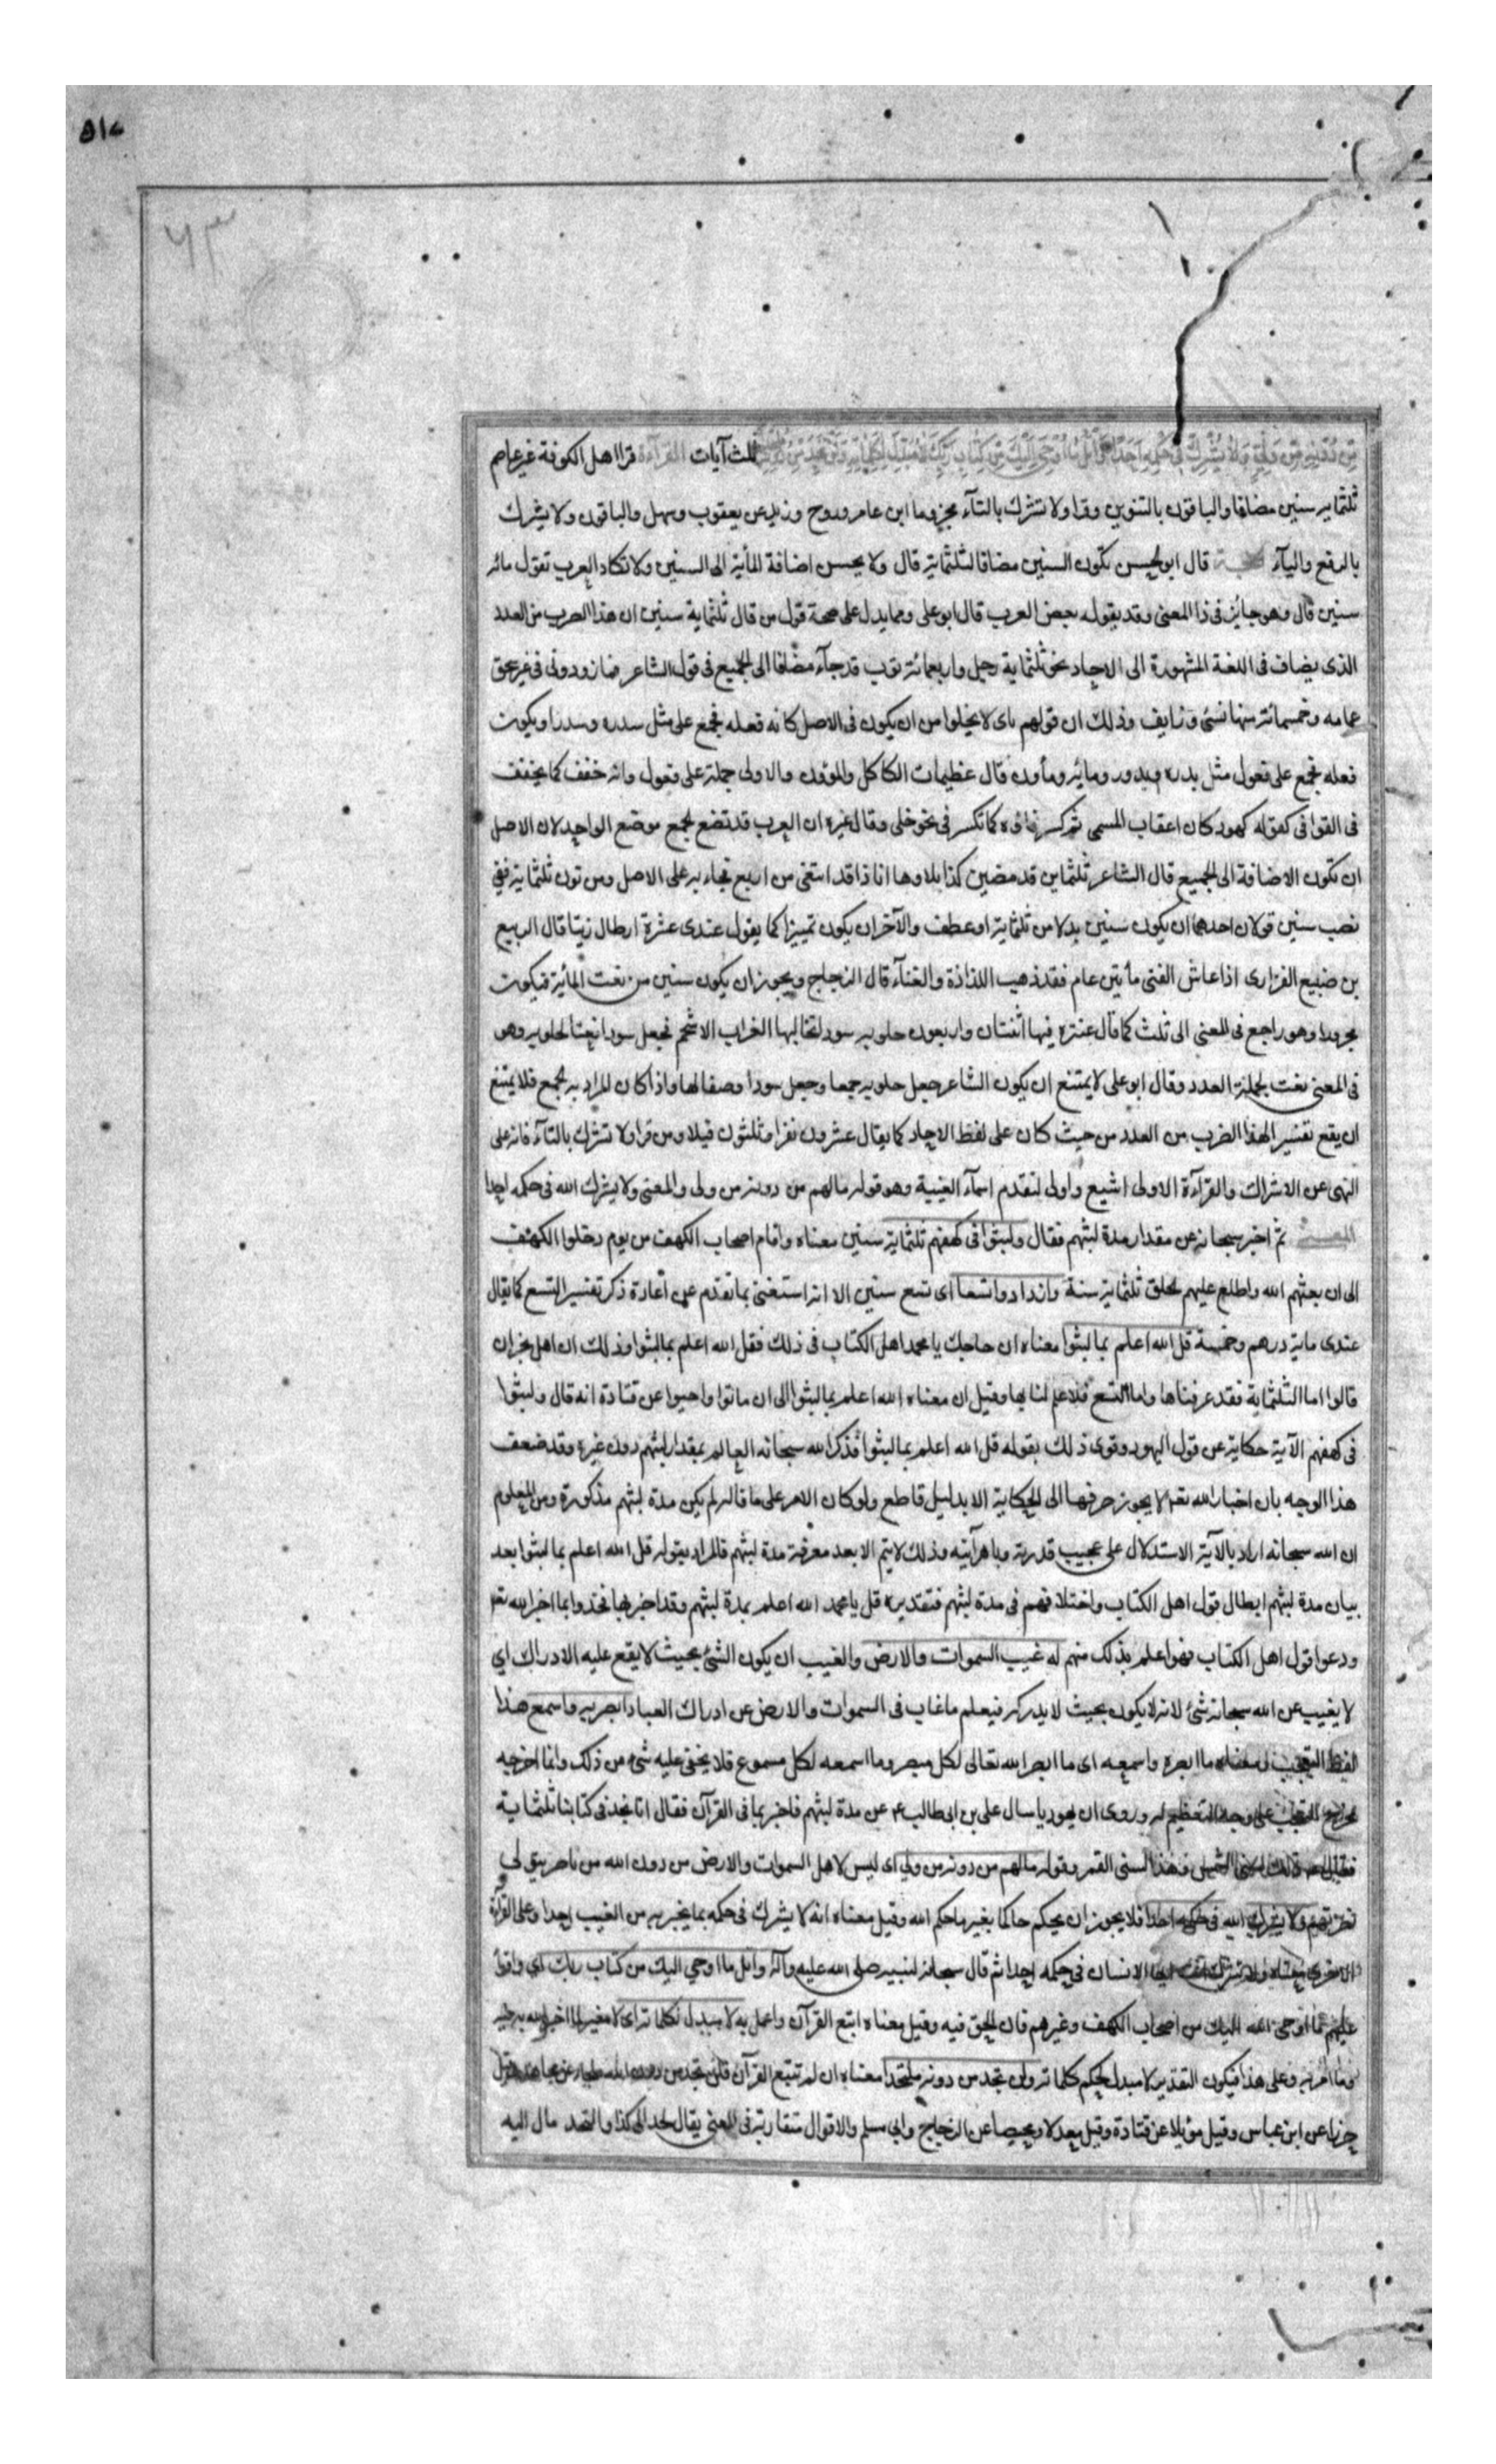 من دونه من ولي ولا يشرك في حكمه احدا واتل ما اوحي اليك من كتاب ربك لا مبدل لكلماته ولن تجد من دونه ملتحدا ثلث آيات القراءة قرا اهل الكوفة غير عاصم
ثلثماية سنين مضافا والباقون بالتنوين وقرا ولا تشرك بالتآء مجزوما ابن عامر وروح وزيد عن يعقوب وسهل والباقون ولا يشرك
بالرفع واليآء الحجة قال ابو الحسن تكون السنين مضافا لثلثماية قال ولا يحسن اضافة المأية الى السنين ولا تكاد العرب تقول مائة
سنين قال وهو جائز في ذا المعنى وقد يقوله بعض العرب قال ابو على ومما يدل على صحة قول من قال ثلثماية سنين ان هذا الضرب من العدد
الذى يضاف فى اللغة المشهورة الى الاحاد نحو ثلثماية رجل واربعمائة ثوب قد جآء مضافا الى الجميع فى قول الشاعر فما زودونى غير سحق
عمامه وخمسمائة منها نسئ وزايف وذلك ان قولهم ماى لا يخلوا من ان يكون فى الاصل كانه فعله فجمع على مثل سدره وسدر او يكون
فعله فجمع على فعول مثل بدره وبدور ومائه ومأون قال عظيمات الكلاكل والمؤون والاولى حمله على فعول وانه خفف كما يخفف
فى القوافى كقوله كهور كان اعقاب السمى ثم كسر فاؤه كما تكسر فى نحو حلى وقال غيره ان العرب قد تضع الجمع موضع الواحد لان الاصل
ان تكون الاضافة الى الجميع قال الشاعر ثلثماين قد مضين كذا بلاوها انا ذا قد ابتغى من اربع فجاء به على الاصل ومن نون ثلثماية ففى
نصب سنين قولان احدهما ان يكون سنين بدلا من ثلثماية او عطف والآخر ان يكون تمييزا كما يقول عندى عشرة ارطال زيتا قال الربيع
بن ضبيع الفزارى اذا عاش الفتى مأيتين عام فقد ذهب اللذاذة والفتآء قال الزجاج ويجوز ان يكون سنين من نعت المائية فيكون
مجرورا وهو راجع فى المعنى الى ثلث كما قال عنتره فيها اثنتان واربعون حلوبه سود لخافيها الغراب الاسحم فجعل سودا نعتا لحلوبه وهو
فى المعنى نعت لجملة العدد وقال ابو على لا يمتنع ان يكون الشاعر جعل حلوبه جمعا وجعل سودا وصفا لها واذا كان المراد به الجمع فلا يمتنع
ان يقع تفسيرا لهذا الضرب من العدد من حيث كان على لفظ الاحاد كما يقال عشرون نفرا وثلثون قبيلا ومن قرا ولا تشرك بالتآء فانه على
النهى عن الاشراك والقرآءة الاولى اشيع واولى لتقدم اسمآء الغيبة وهو قوله مالهم من دونه من ولى والمعنى ولا يشرك الله فى حكمه احدا
المعنى ثم اخبر سبحانه عن مقدار مدة لبثهم فقال ولبثوا فى كهفهم ثلثماية سنين معناه واقام اصحاب الكهف من يوم دخلوا الكهف
الى ان بعثهم الله واطلع عليهم الخلق ثلثماية سنة وازدادوا تسعا اى تسع سنين الا انه استغنى بما تقدم عن اعادة ذكر تفسير التسع كما يقال
عندى ماية درهم وخمسة قل الله اعلم بما لبثوا معناه ان حاجك يا محمد اهل الكتاب فى ذلك فقل الله اعلم بما لبثوا وذلك ان اهل نجران
قالوا اما الثلثماية فقد عرفناها واما التسع فلا علم لنا بها وقيل ان معناه الله اعلم بما لبثوا الى ان ماتوا واحيوا عن قتادة انه قال ولبثوا
فى كهفهم الآية حكاية عن قول اليهود وقوى ذلك بقوله قل الله اعلم بما لبثوا فذكر الله سبحانه العالم بمقدار لبثهم دون غيره وقد ضعف
هذا الوجه بان اخبار الله تعم لا يجوز صرفها الى الحكاية الا بدليل قاطع ولو كان الامر على ما قاله لم يكن مدة لبثهم مذكورة ومن المعلوم
ان الله سبحانه اراد بالآية الاستدلال على عجيب قدرته وباهر آيته وذلك لا يتم الا بعد معرفة مدة لبثهم فالمراد بقوله قل الله اعلم بما لبثوا بعد
بيان مدة لبثهم ابطال قول اهل الكتاب واختلافهم فى مدة لبثهم فتقديره قل يا محمد الله اعلم بمدة لبثهم وقد اخبر بها فخذوا بما اخبر الله تعم
ودعوا قول اهل الكتاب فهو اعلم بذلك منهم له غيب السموات والارض والغيب ان يكون الشئ بحيث لا يقع عليه الادراك اي
لا يغيب عن الله سبحانه شئ لانه لا يكون بحيث لا يدركه فيعلم ما غاب فى السموات والارض عن ادراك العباد ابصر به واسمع هذا
لفظ التعجب ومعناه ما ابصره واسمعه اى ما ابصر الله تعالى لكل مبصر وما اسمعه لكل مسموع فلا يخفى عليه شئ من ذلك وانما اخرجه
مخرج التعجب على وجه التعظيم له وروى ان يهوديا سال على بن ابى طالب ع م عن مدة لبثهم فاخبر بما فى القرآن فقال انا نجد فى كتابنا ثلثماية
فقال ع م ذلك بسنى الشمس وهذا بسنى القمر وقوله مالهم من دونه من ولي اى ليس لاهل السموات والارض من دون الله من ناصر يتولى
نصرتهم ولا يشرك الله فى حكمه احدا فلا يجوز ان يحكم حاكما بغير ما حكم الله وقيل معناه انه لا يشرك فى حكمه بما يخبر به من الغيب احدا وعلى القرآءة
الاخرى معناه ولا تشرك انت ايها الانسان فى حكمه احدا ثم قال سبحانه لنبيه صلى الله عليه وآله واتل ما اوحي اليك من كتاب ربك اى واقرأ
عليهم ما اوحى الله اليك من اصحاب الكهف وغيرهم فان الحق فيه وقيل معناه اتبع القرآن واعمل به لا مبدل لكلماته اى لا مغير لما اخبر الله به
وما امر به وعلى هذا فيكون التقدير لا مبدل لحكم كلماته ولن تجد من دونه ملتحدا معناه ان لم تتبع القرآن فلن تجد من دون الله ملجا عن مجاهد وقيل
حرزا عن ابن عباس وقيل موئلا عن قتادة وقيل معدلا ومحيصا عن الزجاج وابي مسلم والاقوال متقاربة فى المعنى يقال لحد الى كذا والتحد مال اليه